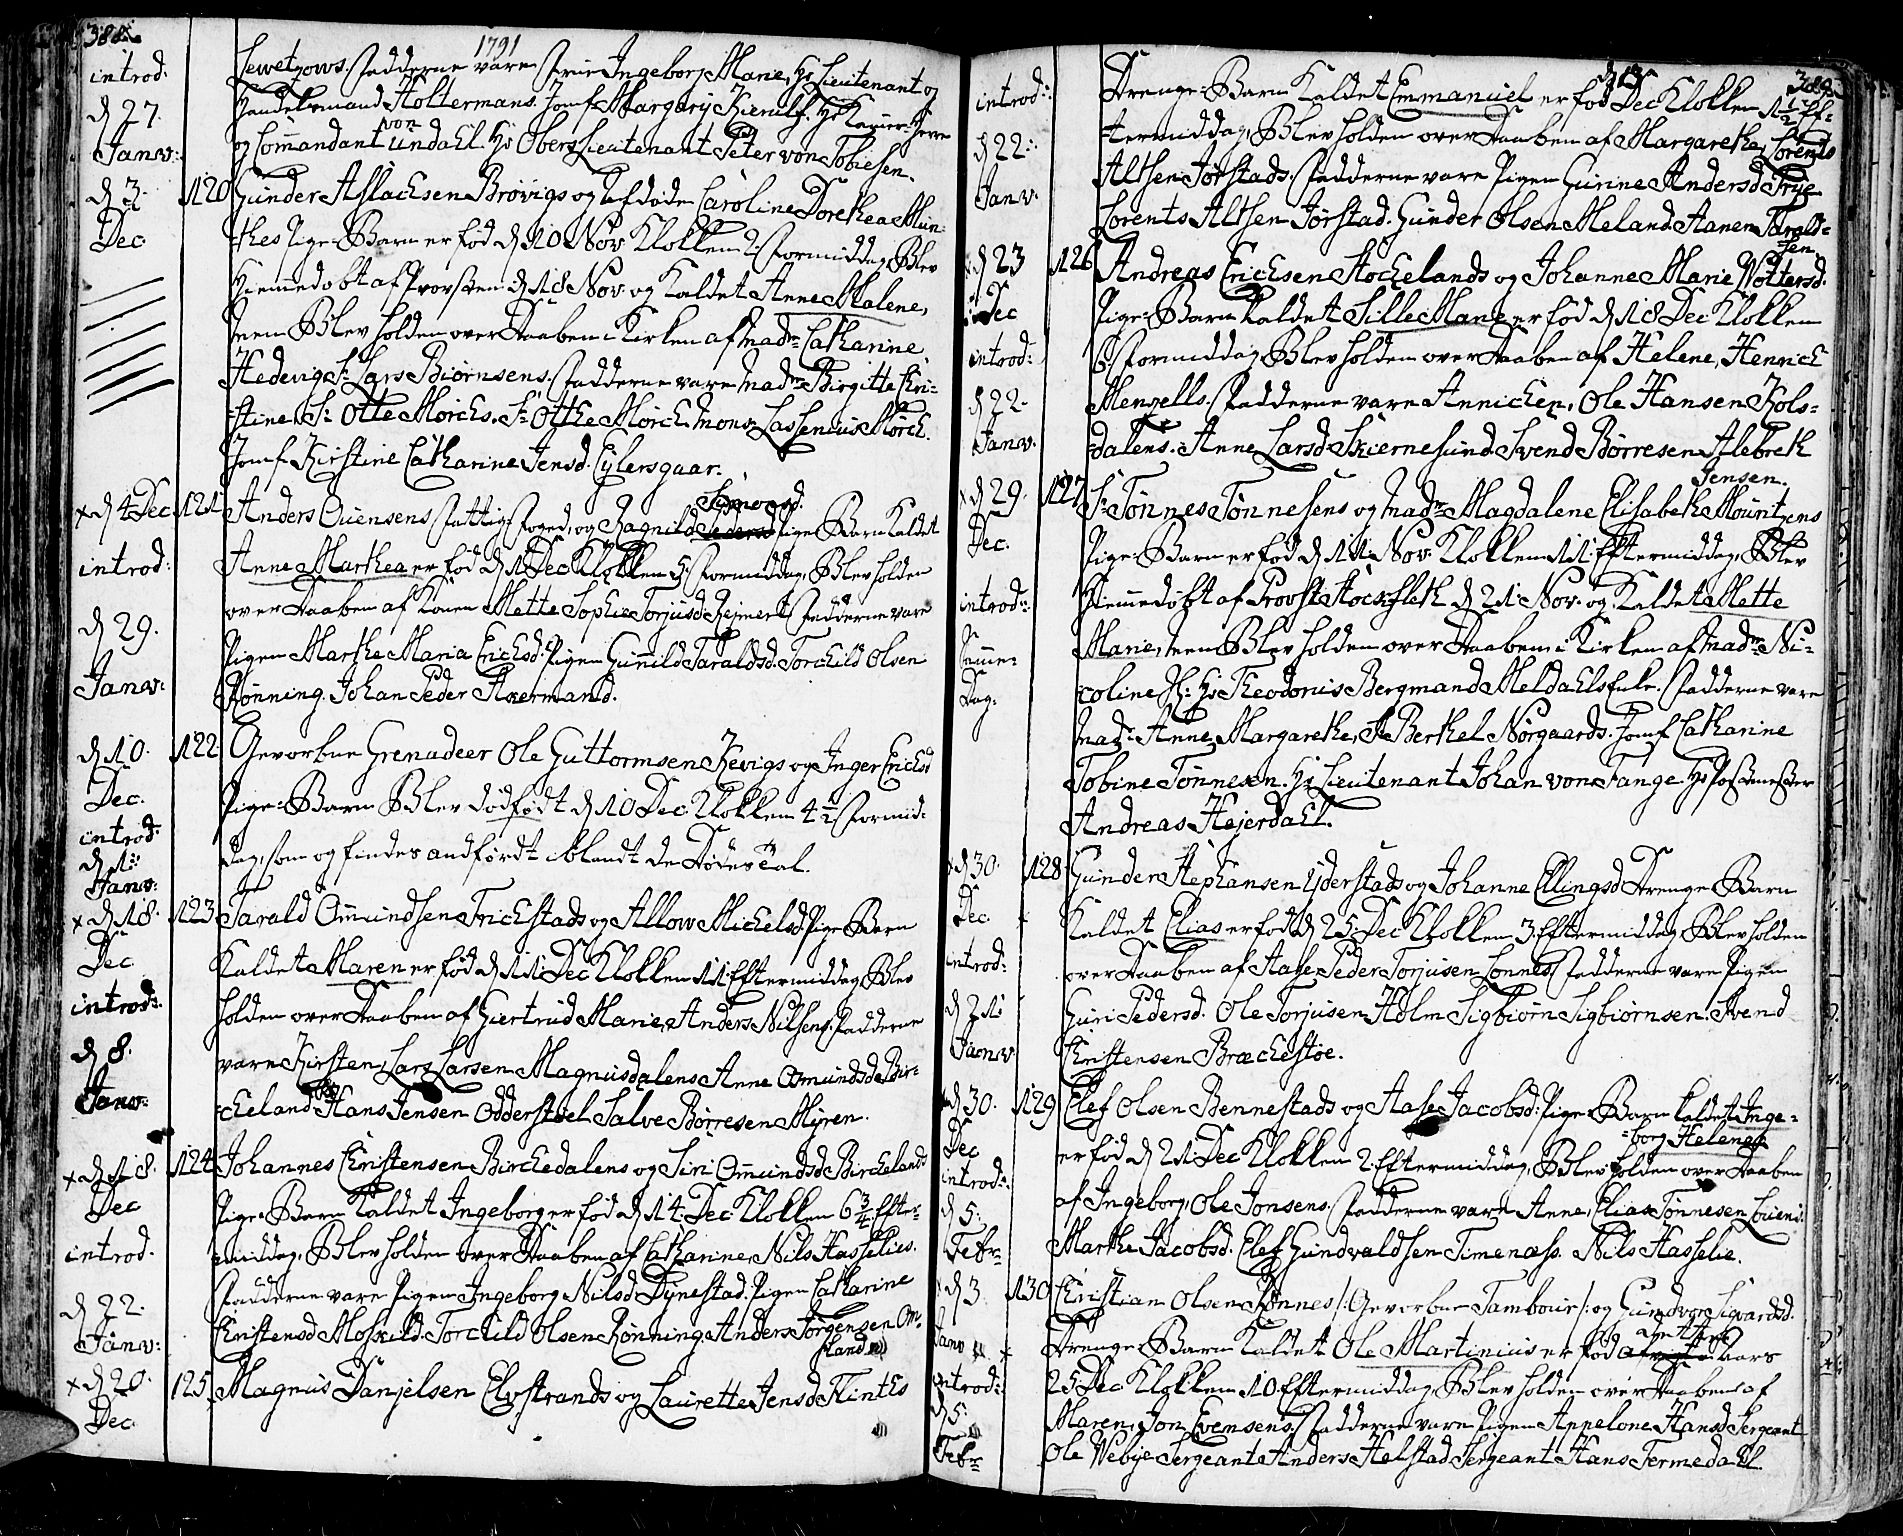 388.
1791
introd:
d 27.
Janv:
Lewetzows. Fadderne vare Frue Ingeborg Marie, Hr Lieutenant og
Handelsmand Holtermans. Jomf. Margary Kierulf. Hr Kamer-Herre
og Commandant von Undahl. Hr Oberst Lieutenant Peter von Tobiesen.
d 3.
Dec
120
Gunder Aslachsen Brøvigs og Afdøde Caroline Dorethea Mun-
thes Pige-Barn er fød d 10 Nov. Klokken 2 Formiddag, Blev
Hiemmedøbt af Provsten d 18 Nov. og Kaldet Anne Malene,
men Blev holden over Daaben i Kirken af Madme Catharine
Hedevig Sr Lars Biørnsens. Fadderne vare Madme Birgitte Kri-
stine, Sr Otte Mørchs. Sr Otthe Mørch. Mons. Lassenius Mørch.
Jomf. Kirstine Catharine Jensd. Eylersgaar.
x d 4 Dec
121
introd:
d 29.
Janv:
Anders Ouensens Fattig-Foged, og Ragnild Simonsd. Pige-Barn Kaldet
Anne Marthea er fød d 1 Dec Klokken 5. Formiddag, Blev holden
over Daaben af Konen Mette Sophie Torjusd Rejmert. Fadderne vare
Pigen Marthe Maria Erichsd. Pigen Gunild Taraldsd. Torchild Olsen
Rønning. Johan Peder Akermand.
d 10.
Dec.
introd.
d 1
Janv:
122
Gevorbne Grenadeer Ole Guttormsen Kevigs og Inger Erichsd
Pige-Barn Blev dødfødt d 10 Dec Klokken 4 1/2 Formid:
dag, som og findes andført iblandt De Dødes Tal.
x d 18.
Dec.
introd:
d 8.
Janv:
123
Tarald Omundsen Trichstads og Allow Michelsd Pige-Barn
Kaldet Maren er fød d 11 Dec Klokken 11 Eftermiddag, Blev
holden over Daaben af Giertrud Marie, Anders Nilsens. Fadderne
vare Kirsten, Lars Larsen Magnusdalens Anne Omundsd Bir-
cheland Hans Jensen Odderstøel Salve Børresen Myren.
x d 18.
Dec
introd.
d 22.
Janv:
124
Johannes Christensen Birchedalens og Siri Omundsd Birchelands
Pige-Barn Kaldet Ingeborg er fød d 14 Dec Klokken 6 3/4 Efter-
middag, Blev holden over Daaben af Catharine, Nils Hasselies.
Fadderne vare Pigen Ingeborg Nilsd Dynestad. Pigen Catharine
Christensd Moseid. Torchild Olsen Rønning. Anders Jørgensen Om-
land
x d 20.
Dec.
125
Magnus Danjelsen Elvstrands og Laurette Jensd Flinths
313
389.
introd:
d 22.
Janv.
Drenge-Barn Kaldet Emmanuel er fød Dec Klokken 1 1/2 Ef-
termiddag, Blev holden over Daaben af Margarethe, Lorents
Altsen Jørstads. Fadderne vare Pigen Gurine Andersd Frye
Lorents Altsen Jørstad. Gunder Olsen Meland. Aanen Tarald-
sen.
d 23
Dec
introd:
d 22.
Janv.
126
Andreas Erichsen Stochelands og Johanne Marie Woltersd.
Pige-Barn Kaldet Sille Marie er fød d 18 Dec Klokken
6 Formiddag, Blev holden over Daaben af Helene, Henrich
Menzells. Fadderne vare Annichen, Ole Hansen Kols-
dalens. Anne Larsd Skiernesund. Svend Børresen Alebrech
Jensen.
x d 29.
Dec.
introd:
Samme
Dag:
127
Sr Tønnes Tønnesens og Madme Magdalene Elisabeth Mountzens
Pige-Barn er fød d 11 Nov. Klokken 11 Eftermiddag, Blev
Hiemmedøbt af Provst Høcsfleth d 21 Nov. og Kaldet Mette
Marie, men Blev holden over Daaben i Kirken af Madme Ni-
coline Hr Theodorus Bergmand Meldahls Enke. Fadderne vare
Mad. Anne Margarethe, Sr Berthel Nørgaards. Jomf Catharine
Tobine Tønnesen. Hr Lieutenant Johan von Tange. Hr Postmester
Andreas Hejerdahl.
d 30.
Dec.
introd:
d 21
Janv
128
Gunder Stephansen Yderstads og Johanne Ellingsd Drenge-Barn
Kaldet Elias er fød d 25 Dec Klokken 3 Eftermiddag Blev holden
over Daaben af Aase, Peder Torjusen Lonnes. Fadderne vare Pigen
Guri Pedersd. Ole Torjusen Holm Sigbiørn Sigbiørnsen. Svend
Christensen Bræchestøe.
d 30.
Dec
introd:
d 5.
Febr
129
Elef Olsen Bennestads og Aase Jacobsd: Pige-Barn Kaldet Inge-
borg Helene
er fød d 21 Dec Klokken 2 Eftermiddag, Blev holden over Daaben
af Ingeborg, Ole Jonsens. Fadderne vare Anne, Elias Tønnesen
Marthe Jacobsd. Elef Gundvaldsen Timenæss. Nils Hasselie.
d 3
Janv
introd:
d 5.
Febr
130
Christian Olsen Tønnes /: Gevorbne Tambour :/ og Gundvor Sivardsd.
Drenge-Barn Kaldet Ole Martinius er fød Aars
25 Dec Klokken 10 Eftermiddag, Blev holden over Daaben af
Maren, Jon Evensens. Fadderne vare Pigen Appelone Hansd. Sergeant
Ole Webye Sergeant Anders Helstad Sergeant Hans Fermedahl.